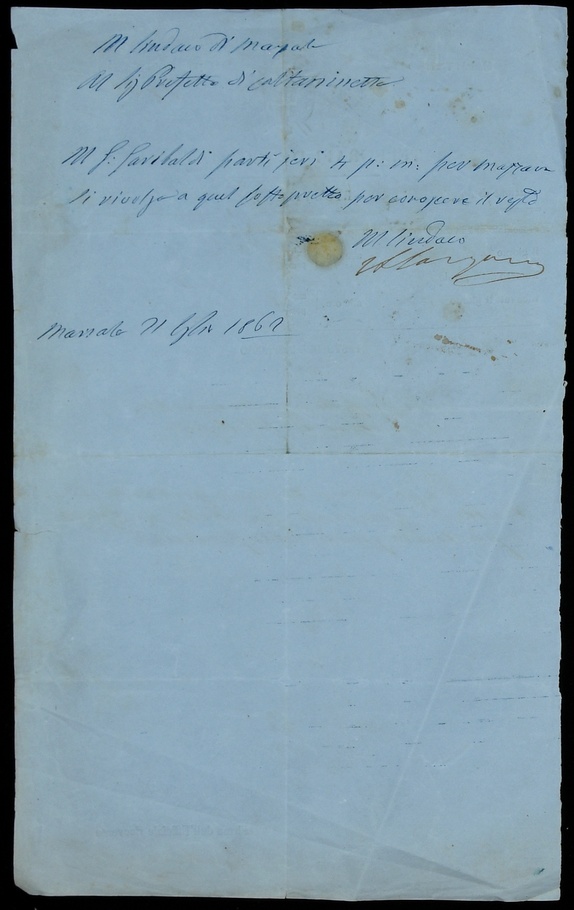 Il Sindaco di Marsala
Al Sig Prefetto di Caltanissetta
Il G: Garibaldi partì jeri 4 p: m: per Mazzara
Si rivolga a quel Sotto prefetto per conoscere il resto
Il Sindaco
Marsala 21 Luglio 1862